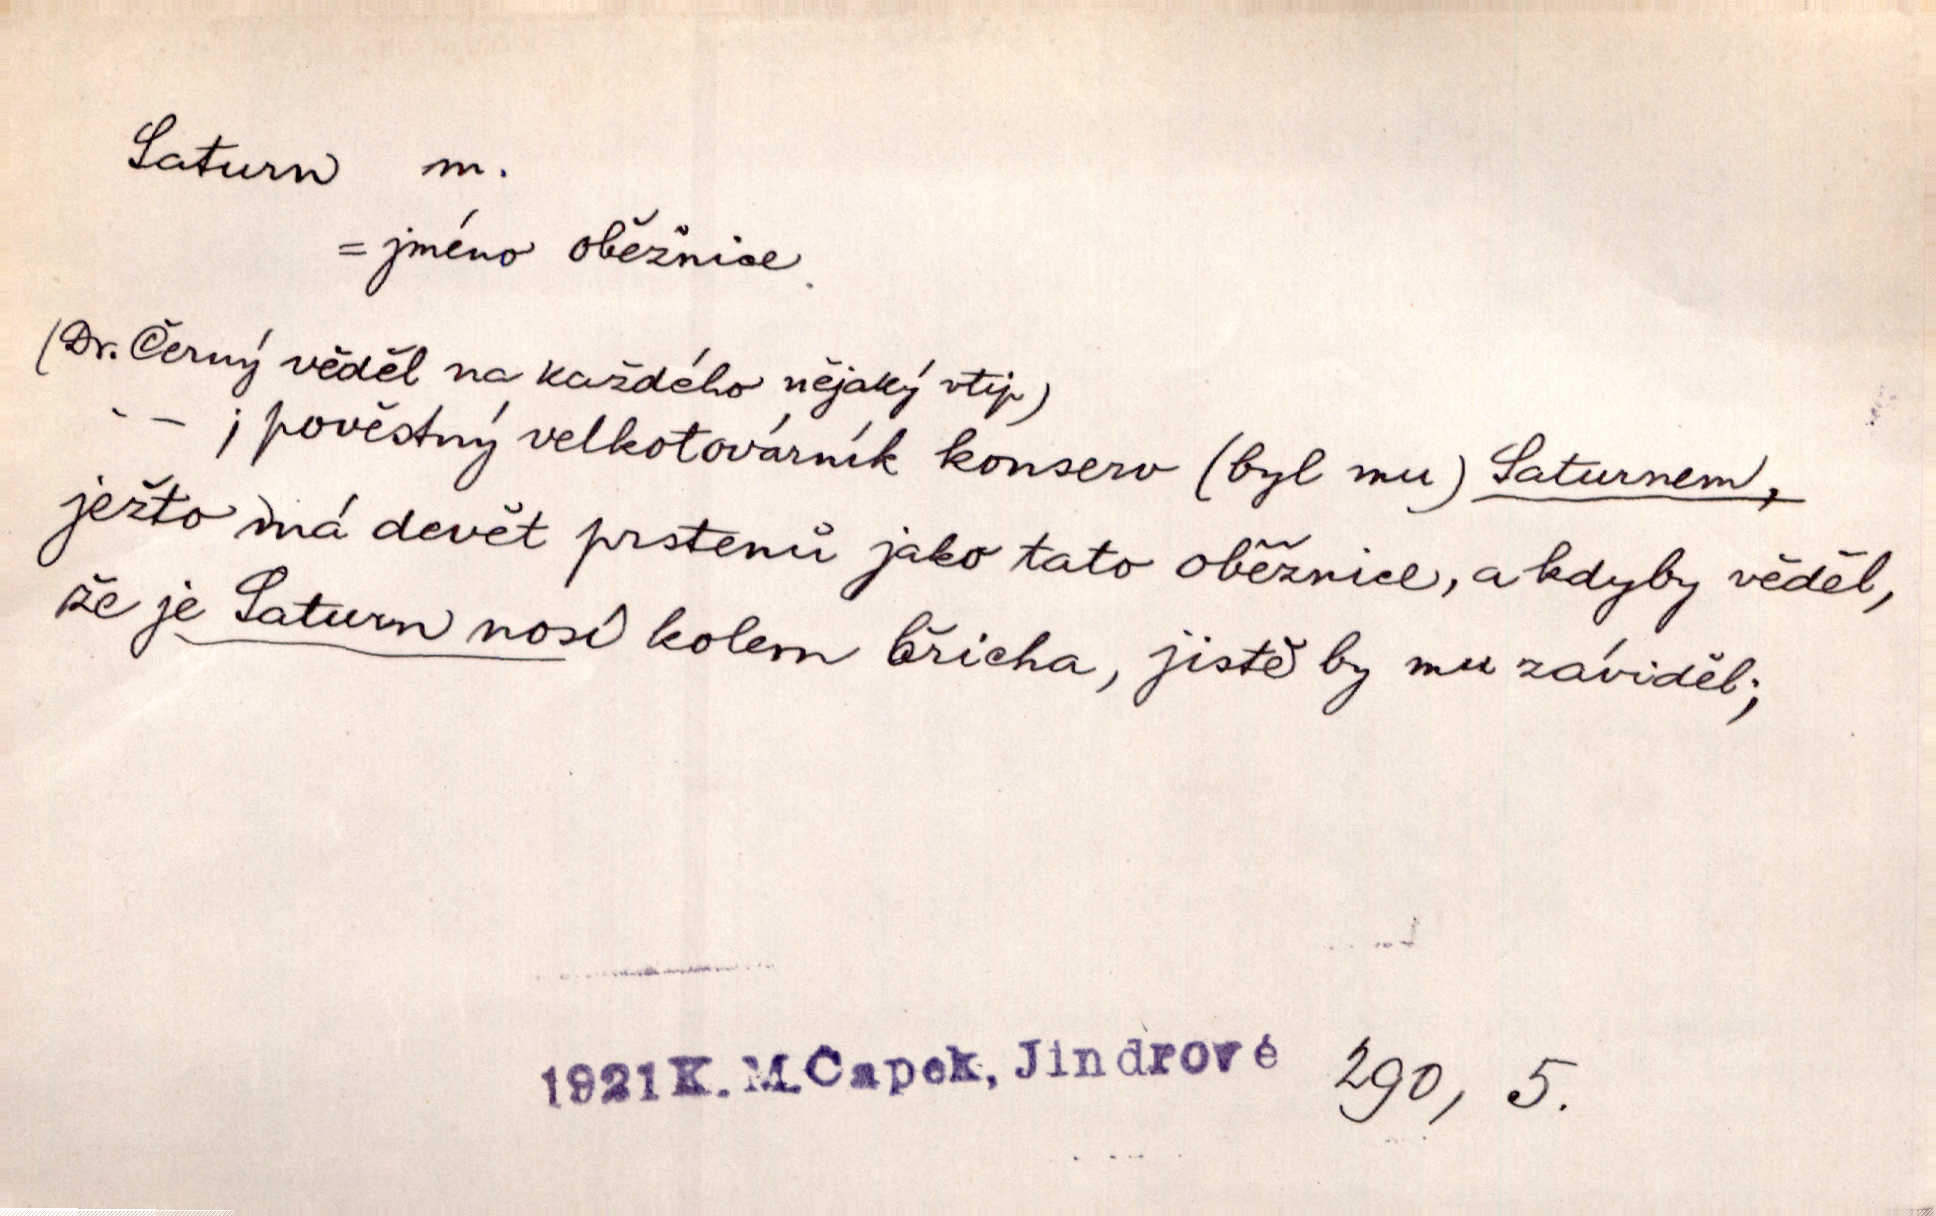 Saturn m.
= jméno oběžnice.
(Dr. Černý věděl na každého nějaký vtip)
- - ; pověstný velkotovárník konserv (byl mu) Saturnem,
ježto má devět prstenů jako tato oběžnice, a kdyby věděl,
že je Saturn nosí kolem břicha, jistě by mu záviděl;
1921 K. M. Čapek, Jindrové 290, 5.